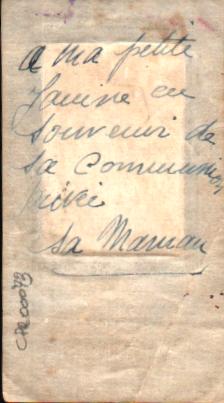 a ma petite
Janine en
souvenir de
sa Communion
sa Maman
CPA00073